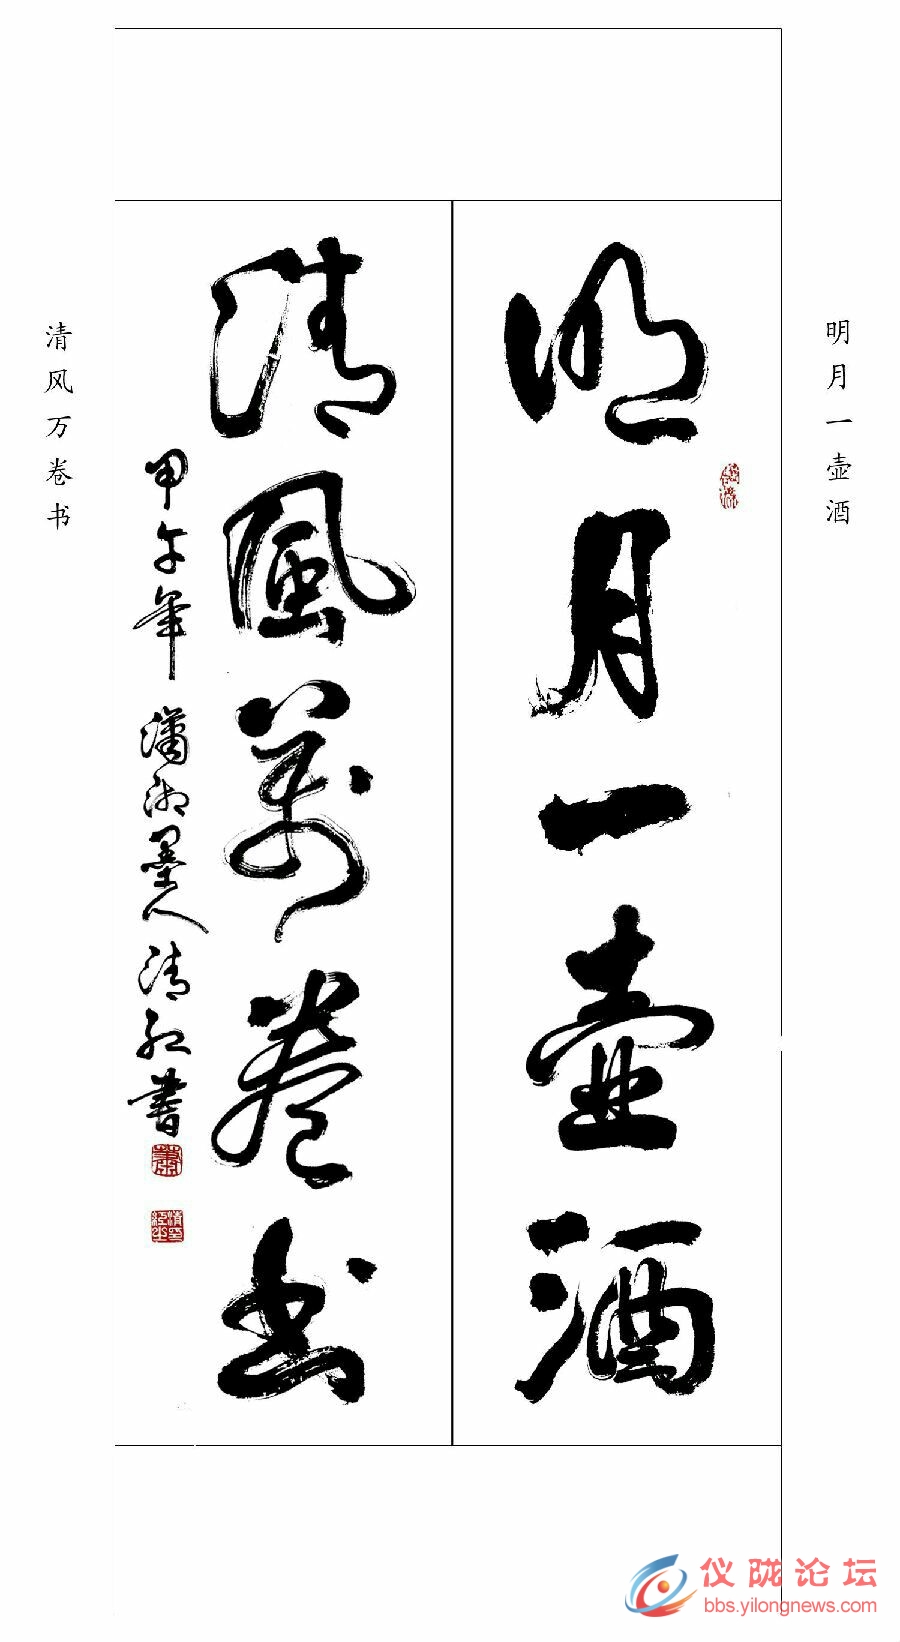 明月一壶酒
明月一壺酒
清風萬卷书
甲午年 瀟湘墨人清紅書
清风万卷书
仪陇论坛
bbs.yilongnews.com